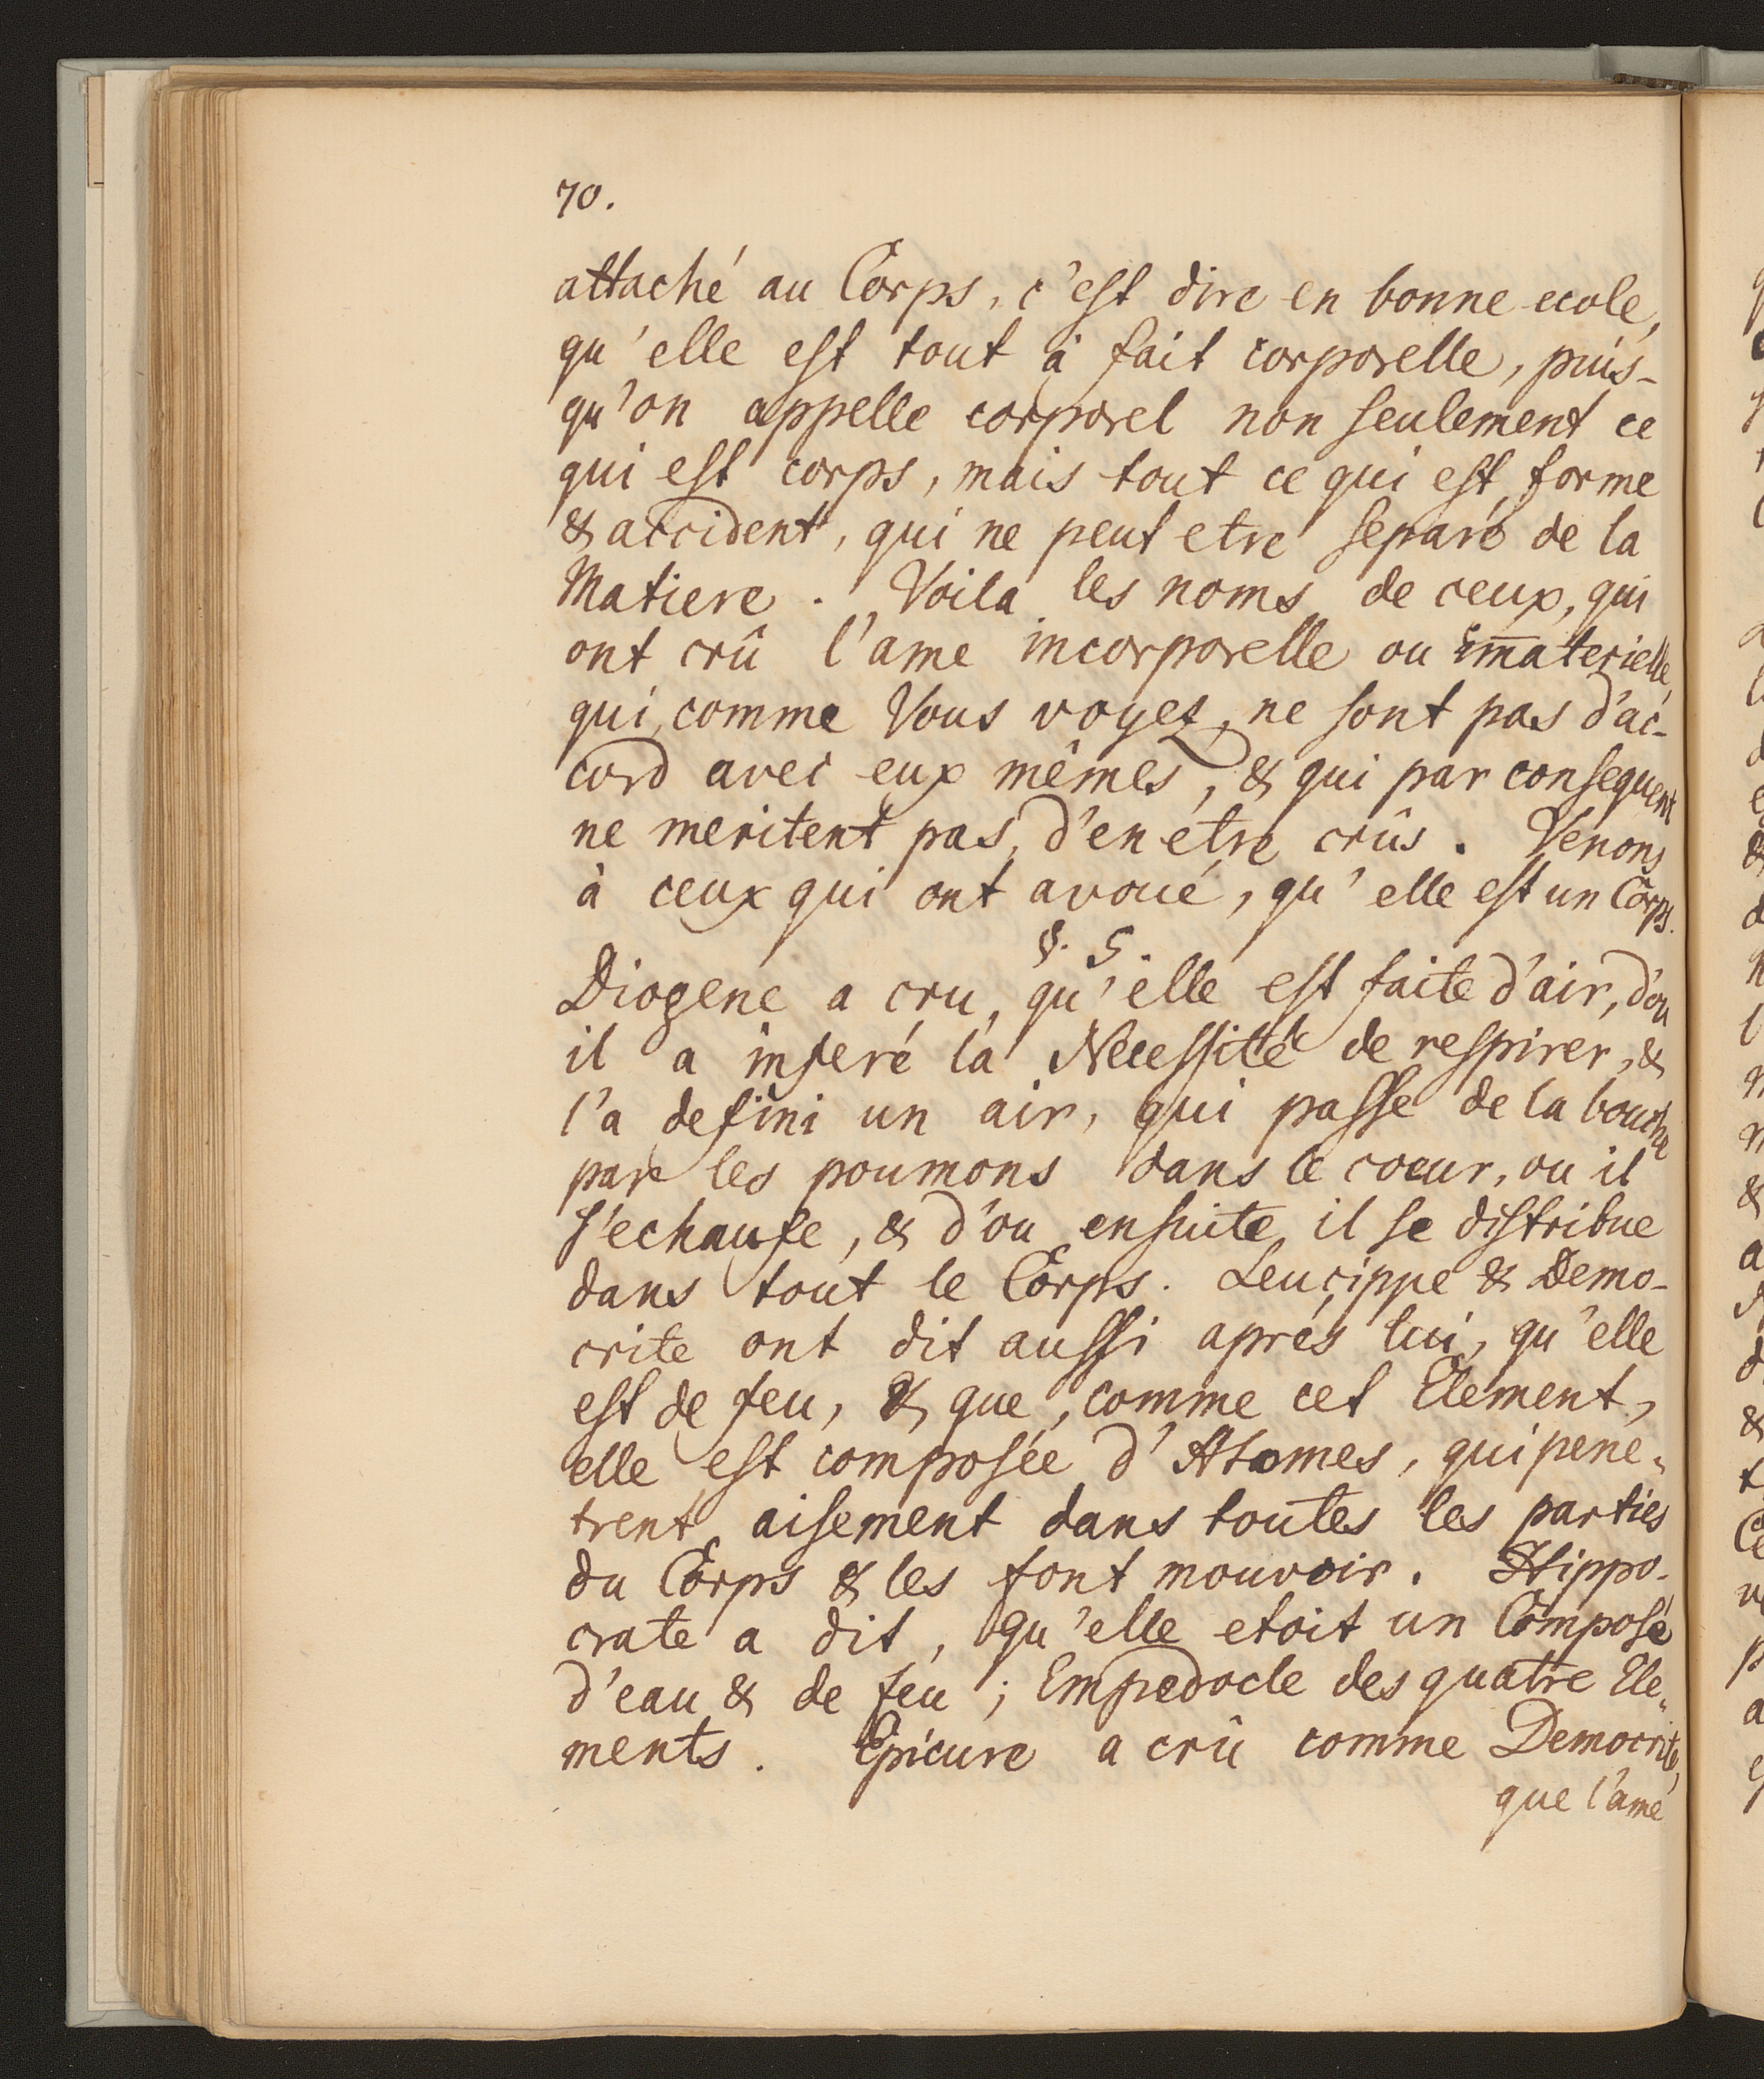 70.
attaché au Corps, c'est dire en bonne ecole,
qu'elle est tout à fait corporelle, puis-
qu'on appelle corporel non seulement ce
qui est corps, mais tout ce qui est forme
& accident, qui ne peut etre separé de la
Matiere. Voila les noms de ceux, qui
ont crû l'ame incorporelle ou im̅aterielle,
qui, comme Vous voyez, ne sont pas d'ac-
cord avec eux mêmes, & qui par consequent
ne meritent pas, d'en etre crûs. Venons
à ceux qui ont avoué, qu'elle est un Corps.
§. 5.
Diogene a cru, qu'elle est faite d'air, d'ou
il a inferé la Necessitté de respirer, &
l'a defini un air, qui passe de la bouche
par les poumons dans le coeur, ou il
s'echaufe, & d'ou ensuite il se distribue
dans tout le Corps. Leucippe & Demo-
crite ont dit aussi aprés lui, qu'elle
est de feu, & que, comme cet Element,
elle est composée d'Atomes, qui pene-
trent aisement dans toutes les parties
du Corps & les font mouvoir. Hippo-
crate a dit, qu'elle etoit un Composé
d'eau & de feu; Empedocle des quatre Ele-
ments. Epicure a crû comme Democrite,
que l'ame